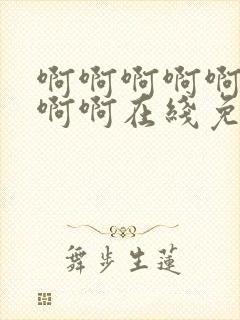 啊啊啊啊啊
啊啊在綫免
舞步生蓮